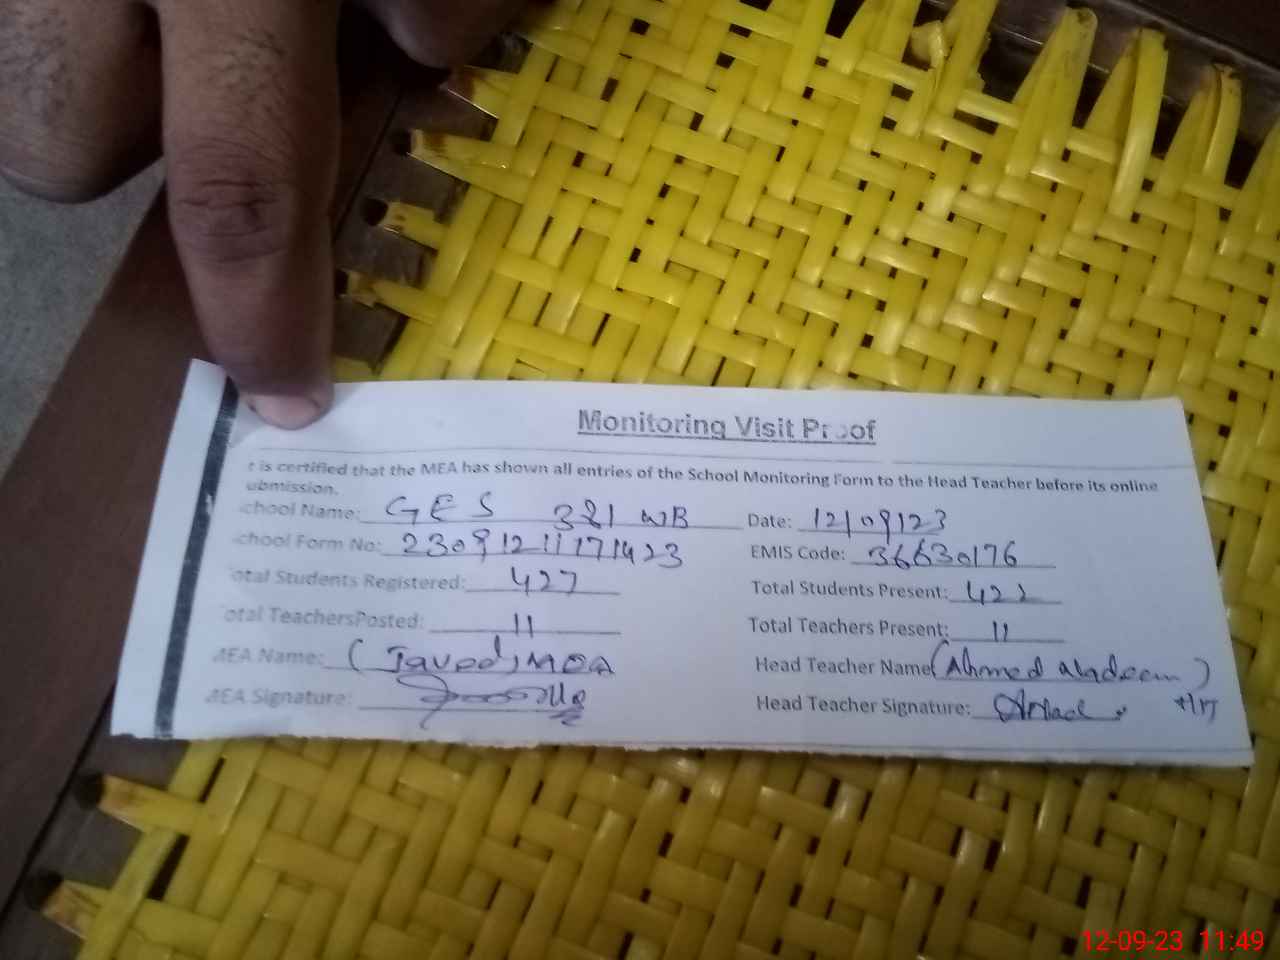 Monitoring Visit Proof
t is certified that the MEA has shown all entries of the School Monitoring Form to the Head Teacher before its online
ubmission.
chool Name: GES 381 WB Date: 12/09/23
chool Form No: 23091211171423 EMIS Code: 36630176
otal Students Registered: 427 Total Students Present: 422
otal TeachersPosted: 11 Total Teachers Present: 11
MEA Name: (Javed) MEA Head Teacher Name (Ahmed Nadeem)
MEA Signature: Head Teacher Signature:
12-09-23 11:49